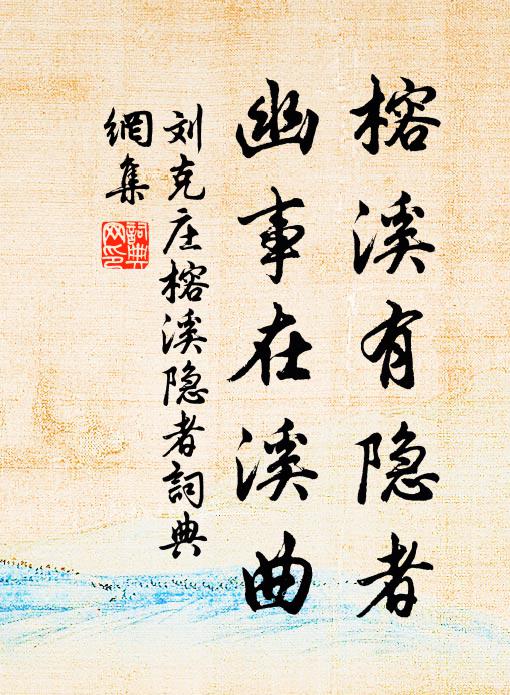 榕溪有隐者
幽事在溪曲
刘克庄榕溪隐者詞典
網集
詞典
网印